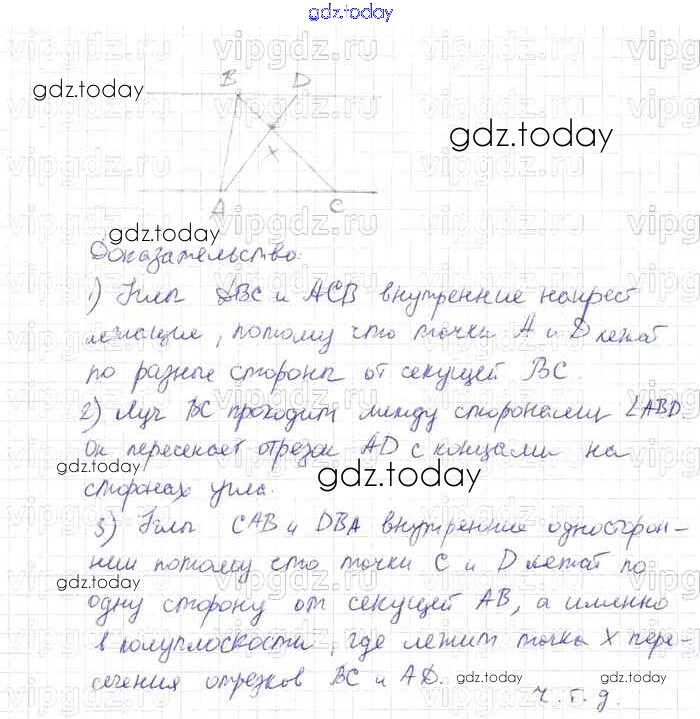 gdz.today
vipgdz.ru vipgdz.ru vipgdz.ru
B D
gdz.today
gdz.today
x
A C
gdz.today
Доказательство:
1) Углы DBC и ACB внутренние накрест
лежащие, потому что точки A и D лежат
по разные стороны от секущей BC.
2) Луч BC проходит между сторонами ∠ABD
Он пересекает отрезок AD с концами на
gdz.today
gdz.today
сторонах угла.
3) Углы CAB и DBA внутренние односторон-
ними потому что точки C и D лежат по
gdz.today
одну сторону от секущей AB, а именно
в полуплоскости, где лежит точка X пере-
сечения отрезков BC и AD.
gdz.today
gdz.today
ч.т.д.